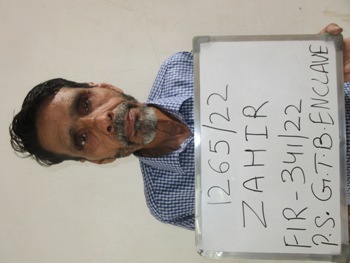 1265/22
ZAHIR
FIR-341/22
P.S. G.T.B. ENCLAVE